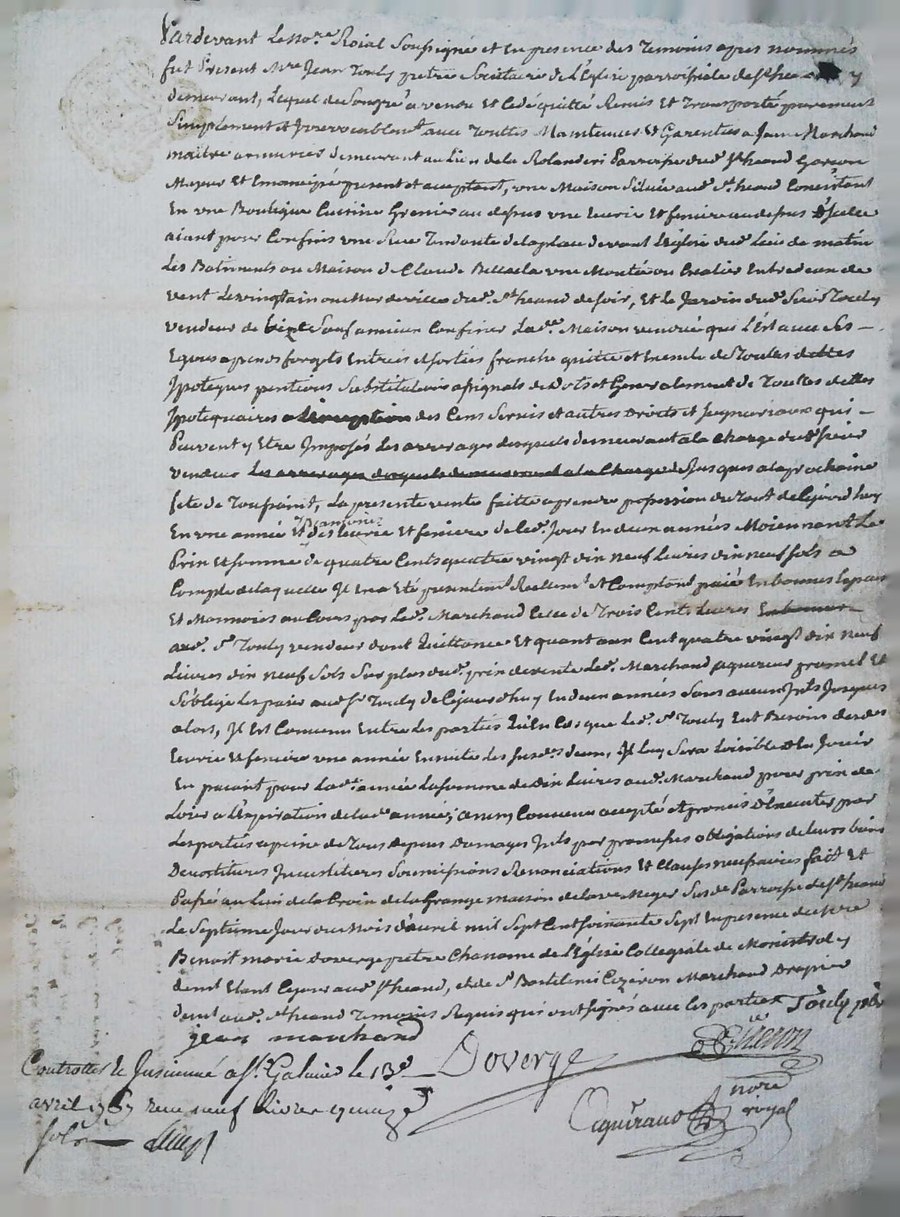 Pardevant Le no.re Roial Soussigné et En presence des Temoins apres nommés
fut Present M.re Jean Touly pretre Societaire de L'Eglise parroissiale de St hea y
demeurant, Lequel de Son gré a vendu Et Cedé quitté Remis Et Transporté purement
Simplement et Irrevocablem.t avec Touttes Maintenues Et Garenties a Jean Marchand
maitre demeurant au Lieu de la Rolandiere Parroisse dud. St heand Garcon
Majeur Et Emancipé present et acceptant, une Maison Situee aud. St heand Consistant
En une Boutique Cuisine Grenier au dessus une Ecurie Et feniere au dessus
aiant pour Confins une Rue Tendante de la place devant L'Eglise dud. Lieu de matin
Les Batiments ou Maison de Claude une Montée ou Escalier Entre deux de
vent Le vingtain ou Mur de ville dud. St heand de soir, Et Le Jardin dud. Sieur Touly
vendeur de bize Sauf a mieux Confiner Lad.e Maison vendue que L'Est avec Ses
Ipoteques pentions Substitutions assignals de Dots et Generalement de Touttes dettes
Ipotequaires a l'exception des Cens Servis et autres Droits et Seigneuriaux qui
Peuvent y Etre Imposés Les arrerages desquels demeurant a la Charge dud. sieur
vendeur Les arrerages desquels demeurant a la Charge d Jusques a la prochaine
fete de Toussaint, La presente vente faitte a prendre possession du Tout de Cejourd'huy
En une année Et des Ecurie Et feniere de Ced. Jour En deux années Moiennant Le
Prix Et somme de quatre Cents quatre vingt dix neuf Livres dix neuf sols a
Compte de laquelle Il en a Eté presentem.t Reellem.t Et Comptant paié En bonnes Especes
Et Monnoies au Cours par Led. Marchand Celle de Trois Cents Livres
aud. S.r Touly vendeur dont Quittance Et quant aux Cent quatre vingt dix neuf
Livres dix neuf Sols Surplus du d. prix de vente Led. Marchand aquereur promet Et
S'oblige Les paier aud. S.r Touly de Cejourd'huy En deux années Sans aucun Jnts Jusques
alors, Il Est Convenu Entre Les parties Qu'En Cas que Led. S.r Touly Eut Besoins desd.es
Ecurie Et feniere une année En suitte Les susd. deux, Il luy Sera Loisible d'En Jouir
En paiant pour Lad.e année La somme de dix Livres aud. Marchand pour prix de
Loier a L'Expiration de lad. année; ainsy Convenu accepté et promis D'Executer par
Les parties a peine de Tous depens Domages Jnts par promesses obligations de leurs biens
Soumissions Renonciations Et Clauses necessaires fait Et
Passé au Lieu de la Croix de la Grange maison de la veuve Parroisse de St heand
Le Septieme Jour du Mois d'avril mil Sept Cent Soixante Sept En presence de M.re
Benoit marie doverge pretre Chanoine de L'Eglise Collegiale de
dem.t Etant Ce jour aud. St heand, et de S.r Bartelemi Cizeron Marchand Drapier
dem.t aud. St heand Temoins Requis qui ont signés avec Les parties. Touly ptre
jean marchand
Doverge
Cizeron
Controllé Et Insinué a St Galmier le 13e
avril 1767 recu neuf Livres quinze
sols
no.re
royal